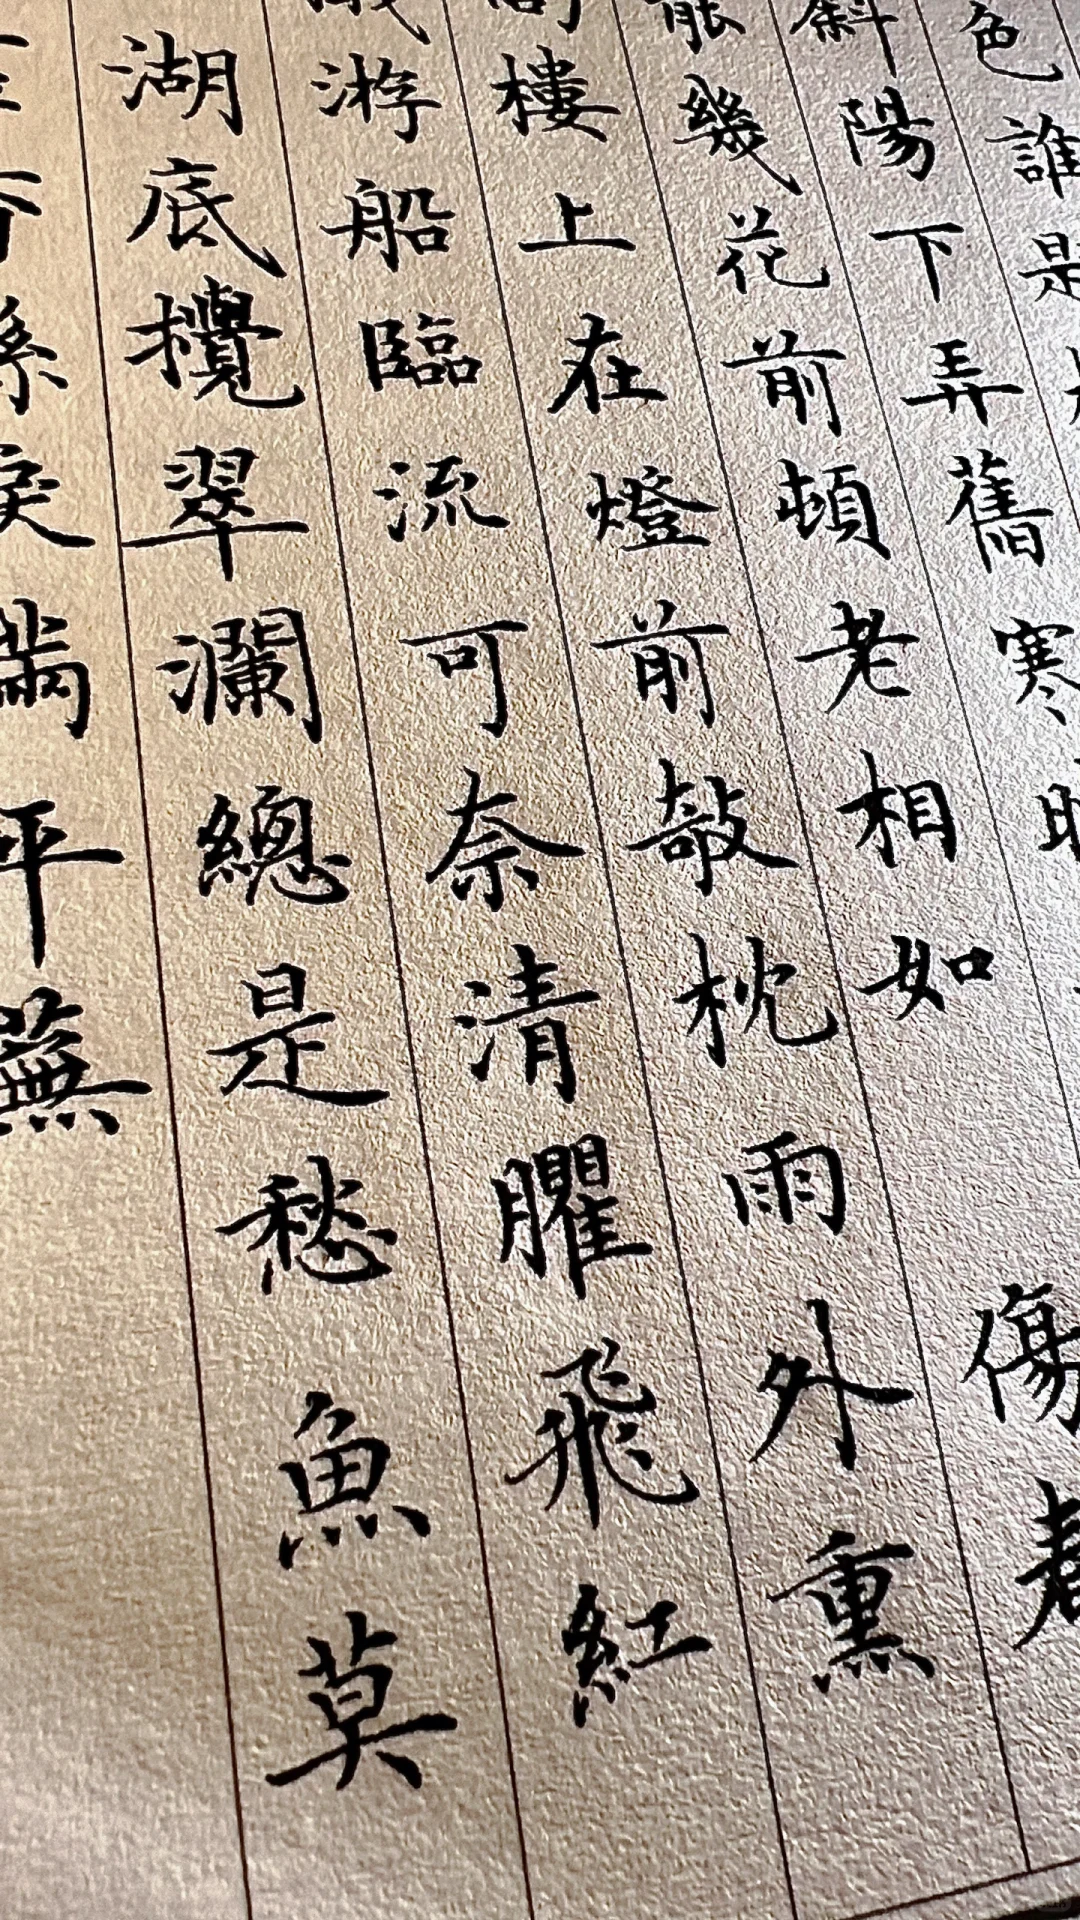 色誰
斜陽下弄舊寒晚
能幾花前頓老相如 傷春
高樓上在燈前敧枕雨外熏
游船臨流可奈清臞飛紅
湖底攪翠瀾總是愁魚莫
香緜淚滿平蕪